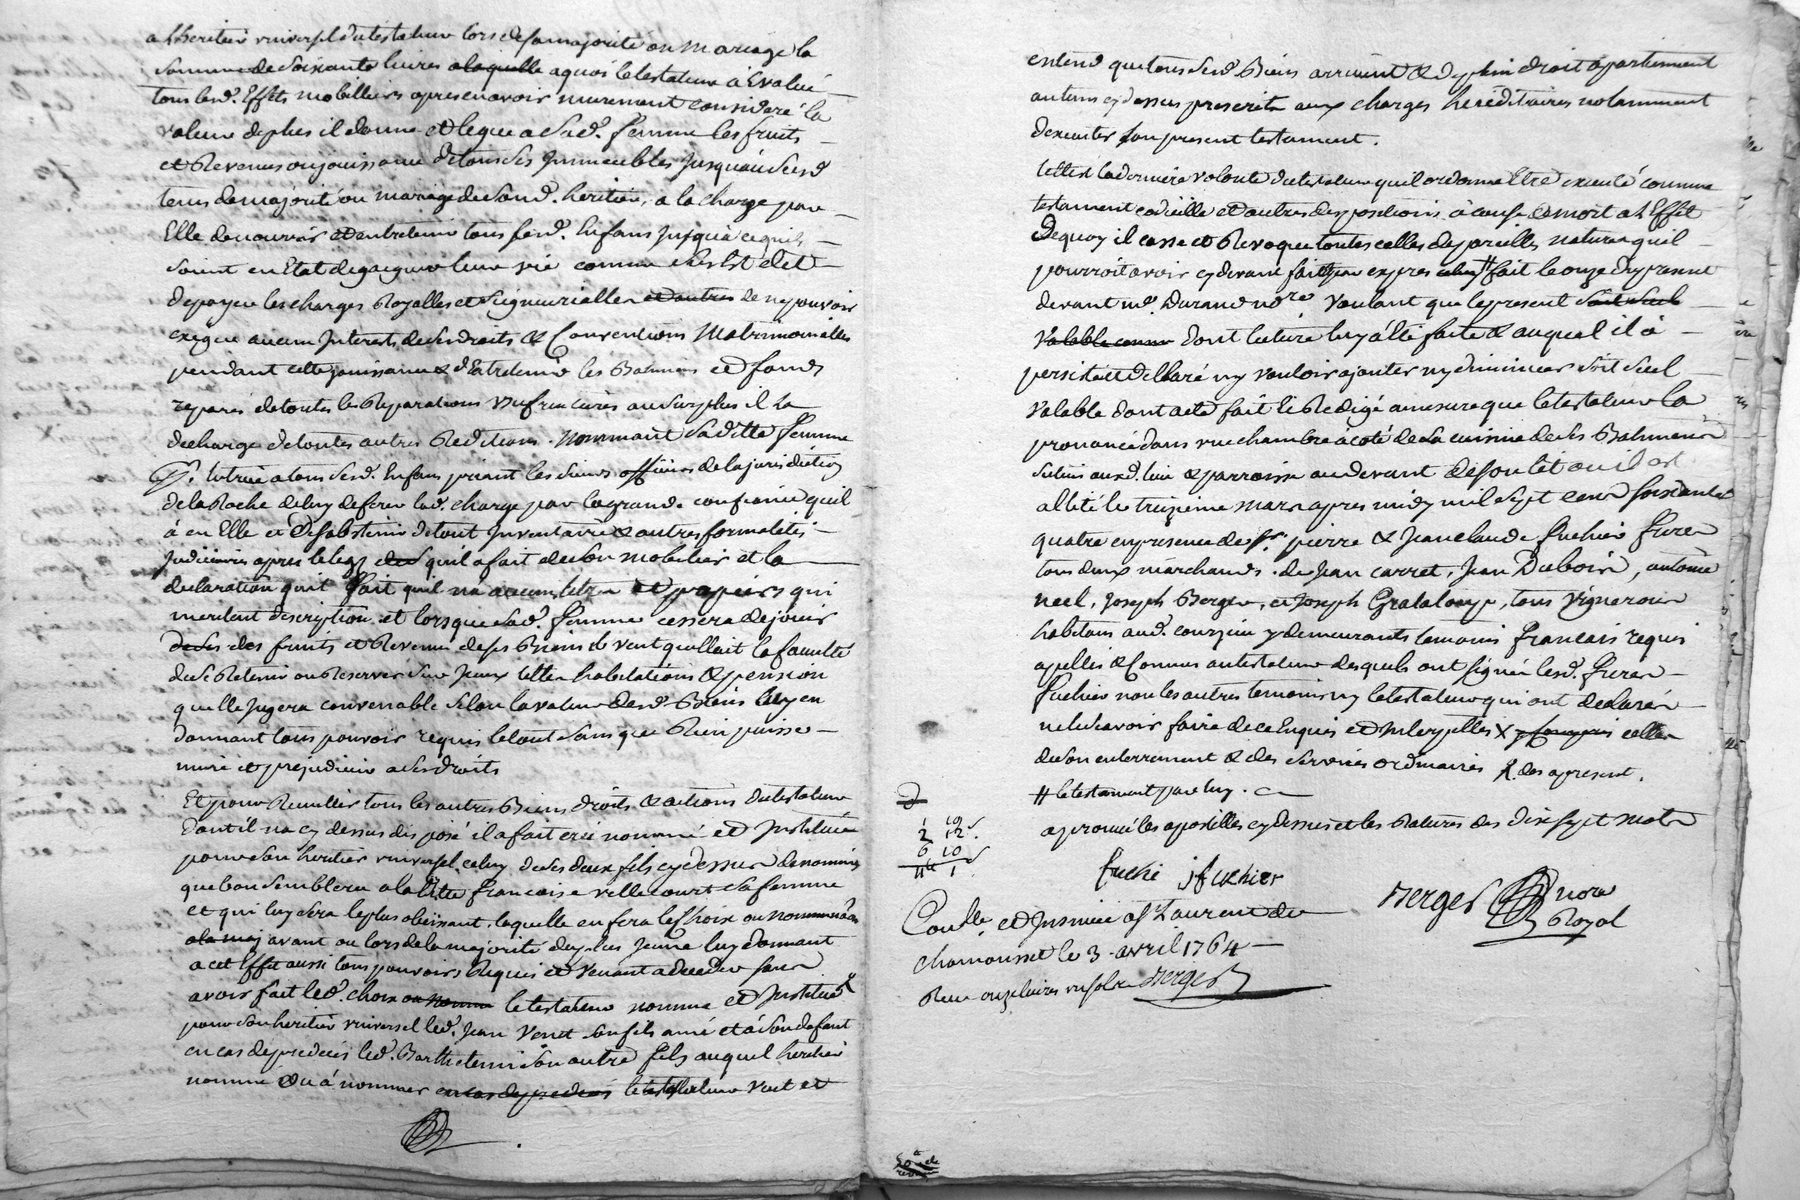 a l'heritier universel du testateur lors de sa majorité ou mariage la
somme de soixante livres a laquelle a quoi le testateur a Evalué
tous lesd. Effets mobilliers apres en avoir murement consideré la
valeur de plus il donne et legue a sad. femme les fruits
et Revenus ou jouissance de tous ses Immeubles jusqu'au susd
tems de majorité ou mariage de sond. heritier, a la charge par
Elle de nourrir et entretenir tous sesd. Enfans jusqu'a ce qu'ils
soient en Etat de gagner leur vie comme
de payer les charges Royalles et seigneurialles et autres de ne pouvoir
exiger aucun Interets de ses droits & Conventions Matrimonialles
pendant cette jouissance & d'Entretenir les Batimens et fonds
reparés de toutes les Reparations usufruitieres au surplus il la
decharge de toutes autres Redditions. nommant sad itte femme
tutrice a tous sesd. Enfans priant les sieurs officiers de la jurisdiction
de la Roche de luy deferer lad. charge par la grande confiance qu'il
à en Elle et de s'abstenir de tout Inventaire & autres formalités
judiciaires apres le legs qu'il a fait de son mobilier et la
declaration qu'il fait qu'il na aucuns titres et papiers qui
meritent description. et lorsque sad. femme cessera de jouir
de ses des fruits et Revenus de ses Biens il veut qu'elle ait la faculté
de se Retenir ou Reserver sur Iceux telles habitations & pension
quelle jugera convenable selon la valeur desd. Biens luy en
donnant tous pouvoir requis le tout sans que Rien puisse
nuire et prejudicier a ses droits
Et pour Recueillir tous les autres Biens droits & actions du testateur
dont il na cy dessus disposé il a fait créé nommé et Institué
pour son heritier universel celuy de ses deux fils cy dessus denommés
que bon semblera a lad itte francoise villecourt sa femme
et qui luy sera le plus obeissant, laquelle en fera le choix ou nomination
a la maj avant ou lors de la majorité du plus jeune luy donnant
a cet Effet aussi tous pouvoirs Requis et venant a deceder sans
avoir fait led. choix ou nomina le testateur nomme et Institue
pour son heritier universel led. Jean Venet son fils ainé et à son defaut
en cas de predecés led. Barthelemi son autre fils auquel heritier
nommé ou à nommer en cas de predecés le testateur veut et
entend que tous sesd. Biens arrivent & de plein droit apartiennent
au tems cy dessus prescrits aux charges hereditaires notamment
d'executer son present testament.
telle est la derniere volonté du testateur qu'il ordonne Etre executé comme
testament codicille et autres dispositions à cause de mort a l'Effet
de quoy il casse et Revoque toutes celles de pareilles nature qu'il
pourroit avoir cy devant faites par expres celuy # fait le onze du present
devant me. Durand nore. voulant que le present soit seul
valable comme dont lecture luy a Eté faite & auquel il à
persisté et declaré ny vouloir ajouter ny diminuer soit seul
valable dont acte fait lû Redigé a mesure que le testateur la
prononcé dans une chambre à coté de la cuisine de ses Batimens
situés aud. lieu & parroisse au devant de son lit ou il est
allité le treizieme mars apres midy mil sept cent soixante
quatre en presence de srs. pierre & Jean claude fuchier freres
tous deux marchands. de Jean carret, Jean Dubois, antoine
neel, Joseph Berger, et Joseph Grataloup, tous vignerons
habitans aud. courzieu y demeurants temoins francais requis
apellés & connus au testateur desquels ont signé lesd. freres
fuchier non les autres temoins ny le testateur qui ont declaré
ne le scavoir faire de ce Enquis et Interpellés X celles
de son enterrement & des services ordinaires
# le testament par luy.
aprouvé les apostilles cy dessus et les Ratures des dix sept mots
fuchié jfuchier
Berger nore
Royal
2 12.
6 10
Conlle. et Insinué a St Laurent de
chamousset le 3 avril 1764
Recu onze livres un sol Berger